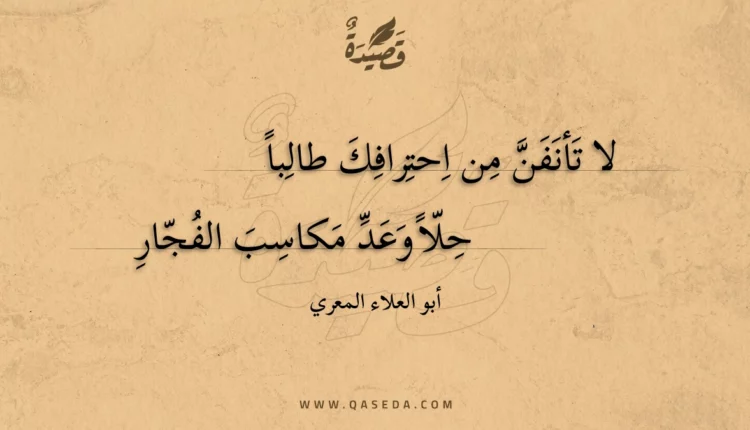 قَصِيْدَةٌ
لا تَأنَفَنَّ مِن اِحتِرافِكَ طالِباً
حِلّاً وَعَدِّ مَكاسِبَ الفُجّارِ
أبو العلاء المعري
WWW.QASEDA.COM